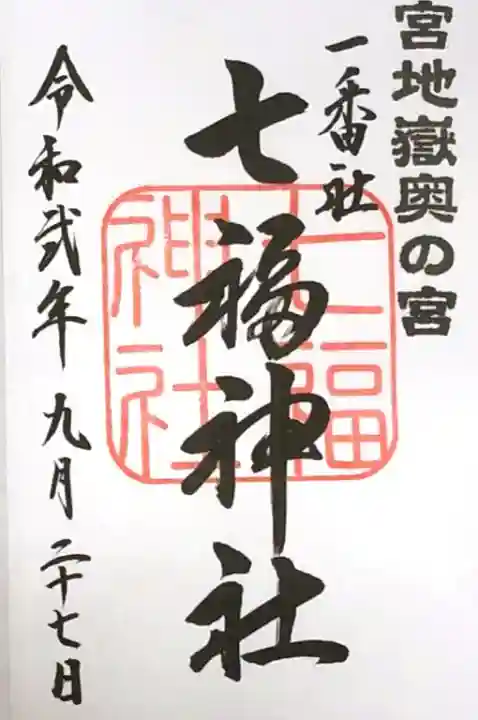 宮地嶽奥の宮
一番社
七福神社
七福神社
令和弐年九月二十七日